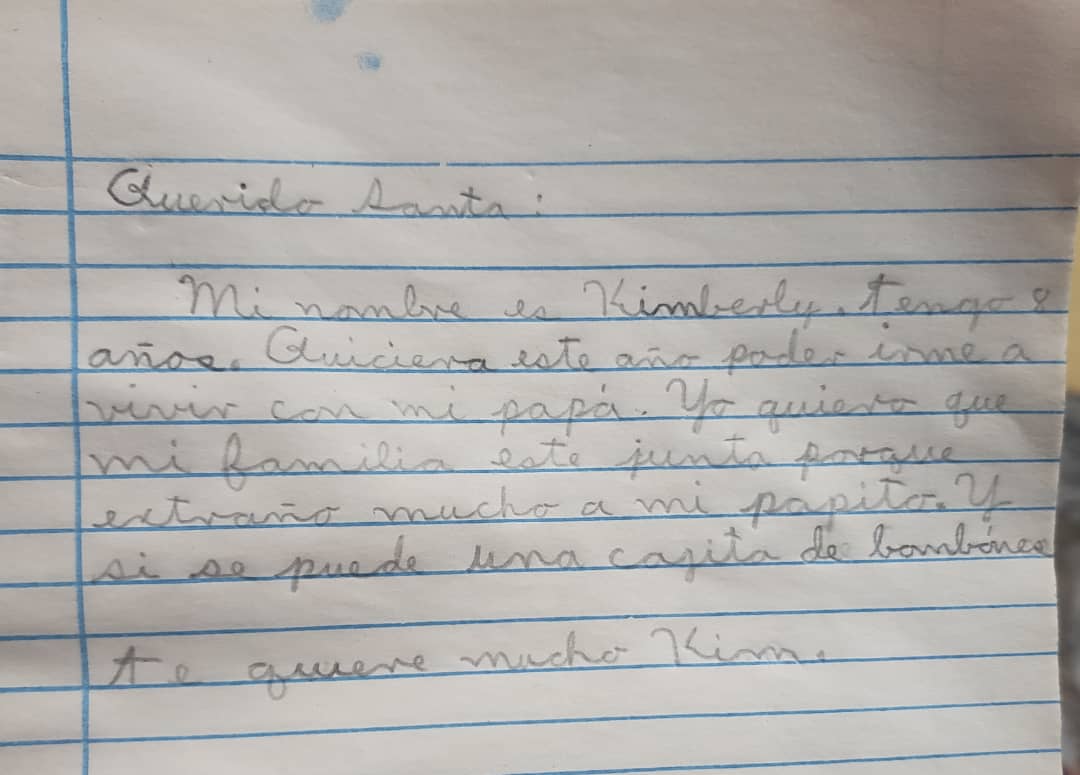 Querido Santa:
Mi nombre es Kimberly. tengo 8
años. Quiciera este año poder irme a
vivir con mi papá. Yo quiero que
mi familia este junta porque
extraño mucho a mi papito. Y
si se puede una cajita de bombónes
te quiere mucho Kim.